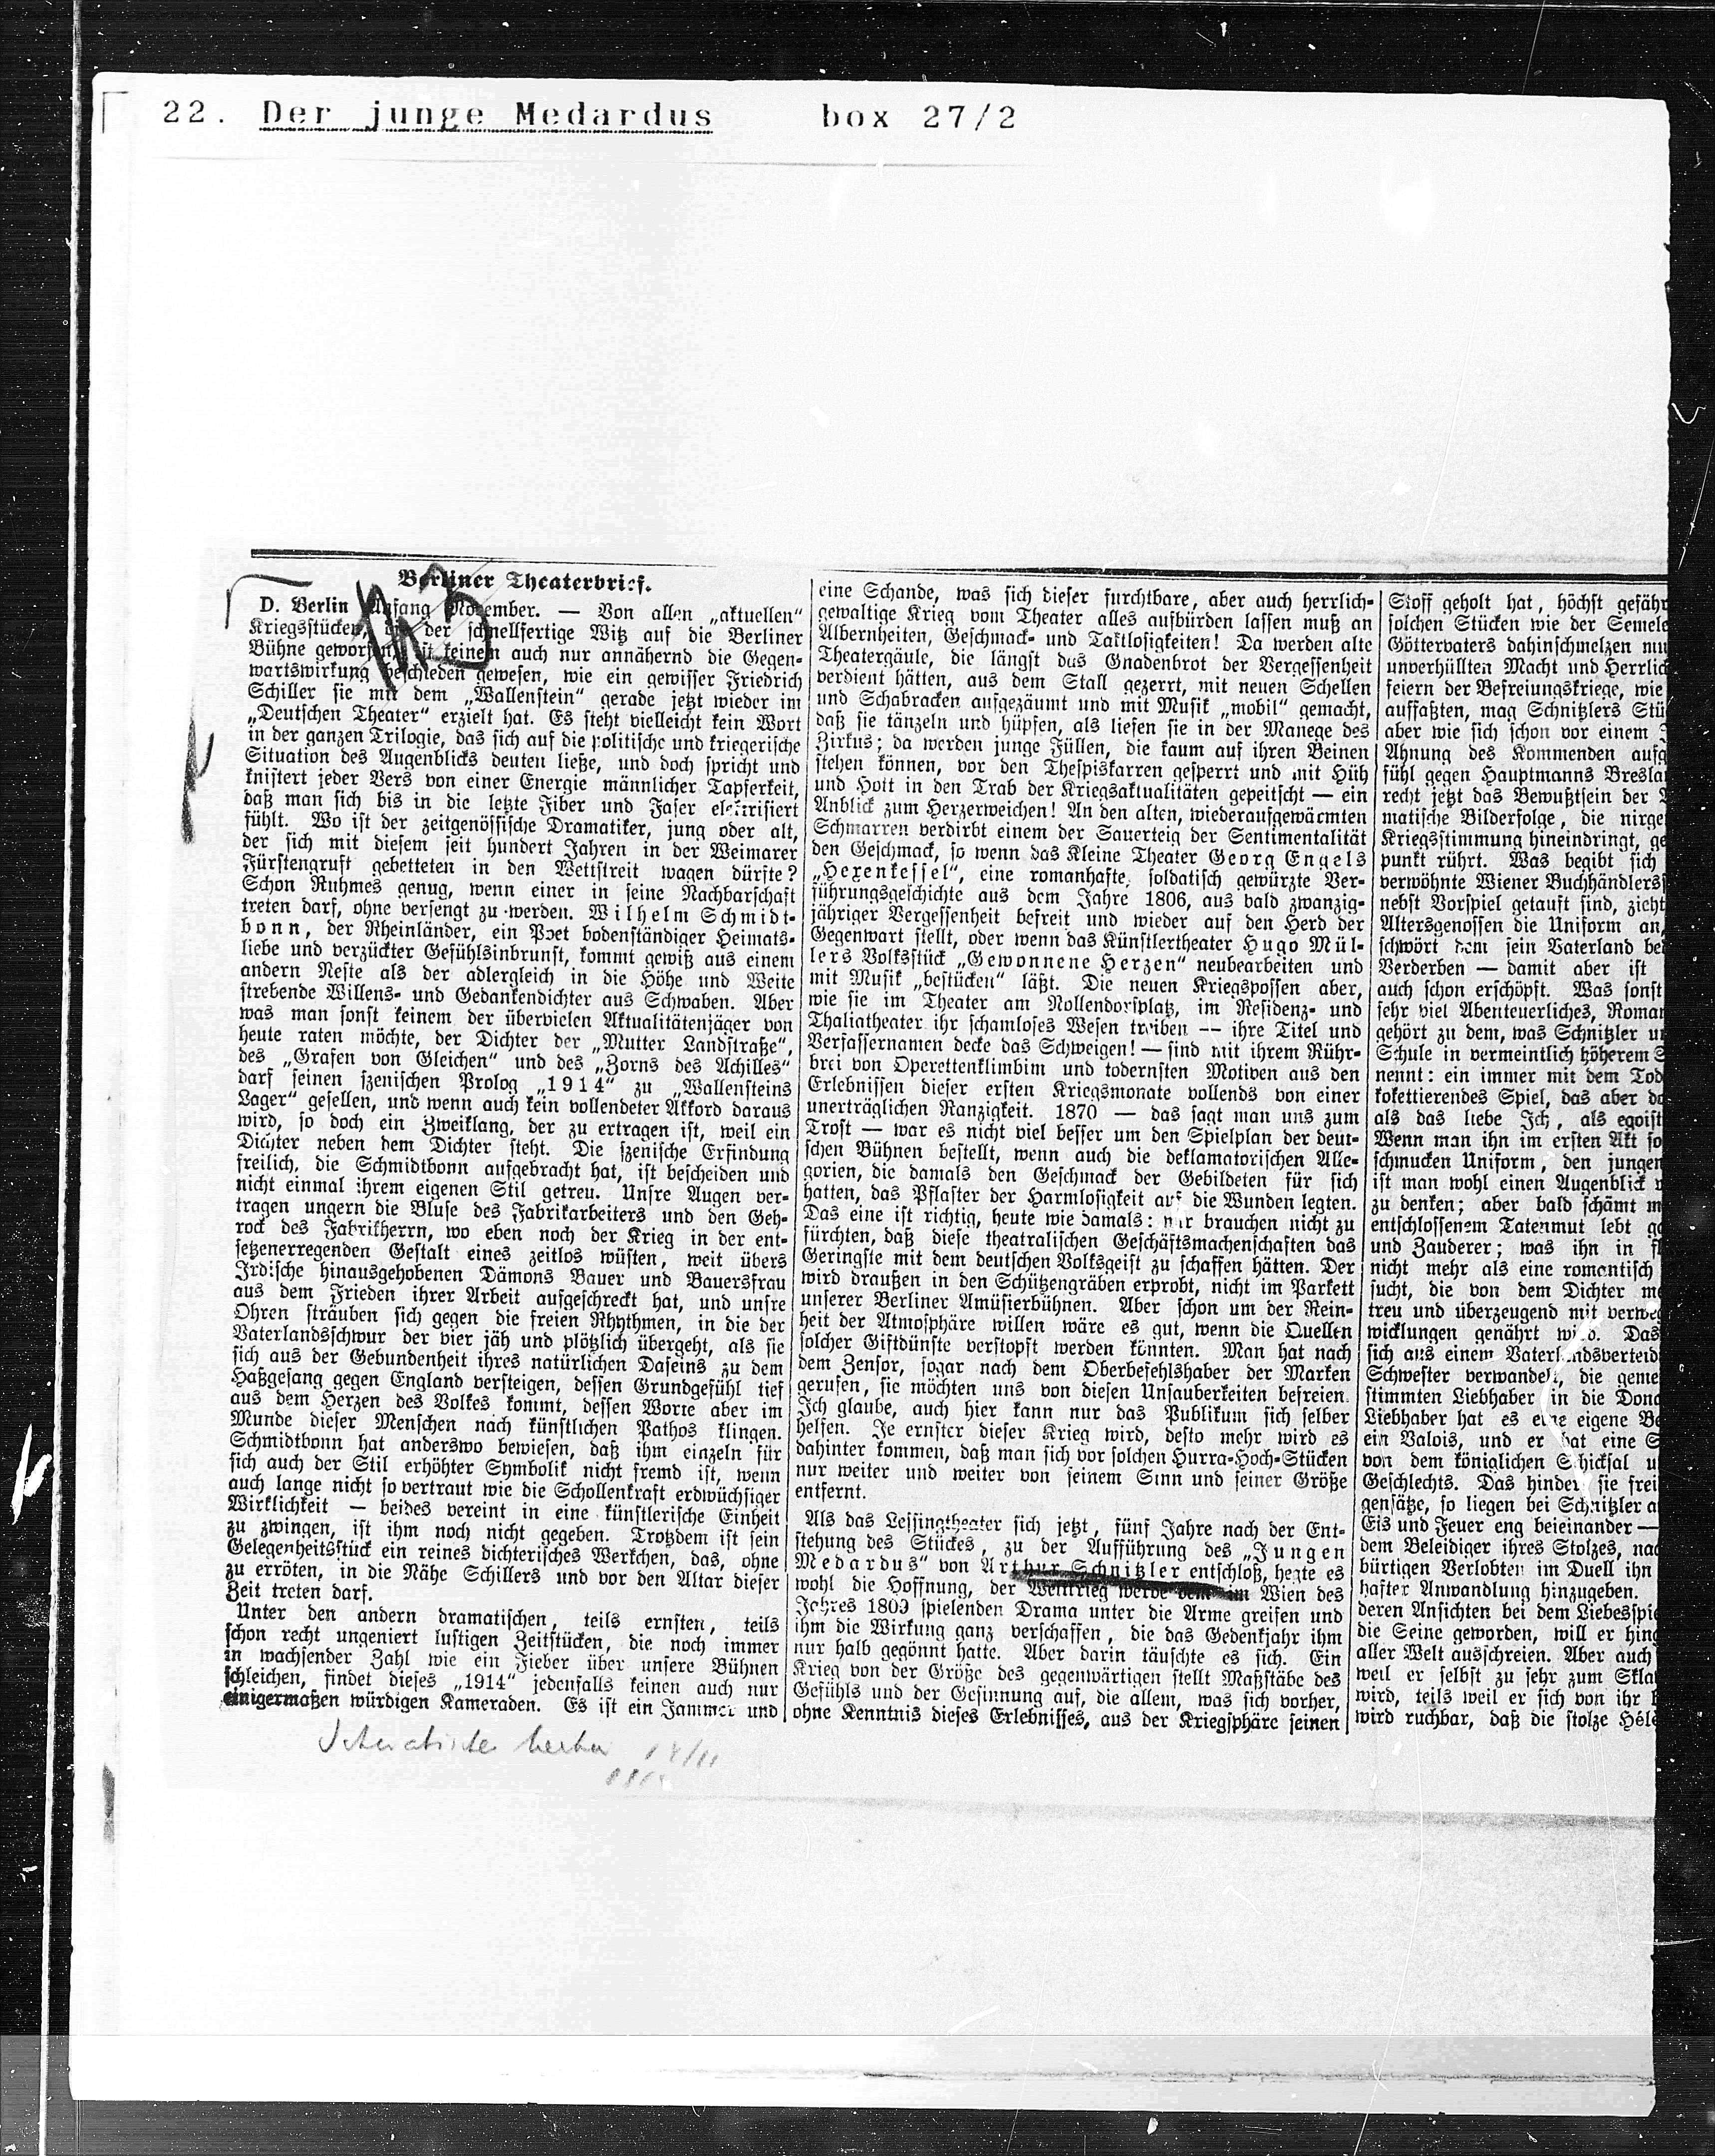 22. Der junge Medardus box 27/2
Berliner Theaterbrief.
D. Berlin Anfang November. — Von allen „aktuellen“
Kriegsstücken, der schnellfertige Witz auf die Berliner
Bühne geworfen, ist keinem auch nur annähernd die Gegen-
wartswirkung beschieden gewesen, wie ein gewisser Friedrich
Schiller sie mit dem „Wallenstein“ gerade jetzt wieder im
„Deutschen Theater“ erzielt hat. Es steht vielleicht kein Wort
in der ganzen Trilogie, das sich auf die politische und kriegerische
Situation des Augenblicks deuten ließe, und doch spricht und
knistert jeder Vers von einer Energie männlicher Tapferkeit,
daß man sich bis in die letzte Fiber und Faser elektrisiert
fühlt. Wo ist der zeitgenössische Dramatiker, jung oder alt,
der sich mit diesem seit hundert Jahren in der Weimarer
Fürstengruft gebetteten in den Wettstreit wagen dürfte?
Schon Ruhmes genug, wenn einer in seine Nachbarschaft
treten darf, ohne versengt zu werden. Wilhelm Schmidt-
bonn, der Rheinländer, ein Poet bodenständiger Heimats-
liebe und verzückter Gefühlsinbrunst, kommt gewiß aus einem
andern Neste als der adlergleich in die Höhe und Weite
strebende Willens- und Gedankendichter aus Schwaben. Aber
was man sonst keinem der übervielen Aktualitätenjäger von
heute raten möchte, der Dichter der „Mutter Landstraße“,
des „Grafen von Gleichen“ und des „Zorns des Achilles“
darf seinen szenischen Prolog „1914“ zu „Wallensteins
Lager“ gesellen, und wenn auch kein vollendeter Akkord daraus
wird, so doch ein Zweiklang, der zu ertragen ist, weil ein
Dichter neben dem Dichter steht. Die szenische Erfindung
freilich, die Schmidtbonn aufgebracht hat, ist bescheiden und
nicht einmal ihrem eigenen Stil getreu. Unsre Augen ver-
tragen ungern die Bluse des Fabrikarbeiters und den Geh-
rock des Fabrikherrn, wo eben noch der Krieg in der ent-
setzenerregenden Gestalt eines zeitlos wüsten, weit übers
Irdische hinausgehobenen Dämons Bauer und Bauersfrau
aus dem Frieden ihrer Arbeit aufgeschreckt hat, und unsre
Ohren sträuben sich gegen die freien Rhythmen, in die der
Vaterlandsschwur der vier jäh und plötzlich übergeht, als sie
sich aus der Gebundenheit ihres natürlichen Daseins zu dem
Haßgesang gegen England versteigen, dessen Grundgefühl tief
aus dem Herzen des Volkes kommt, dessen Worte aber im
Munde dieser Menschen nach künstlichen Pathos klingen.
Schmidtbonn hat anderswo bewiesen, daß ihm einzeln für
sich auch der Stil erhöhter Symbolik nicht fremd ist, wenn
auch lange nicht so vertraut wie die Schollenkraft erdwüchsiger
Wirklichkeit — beides vereint in eine künstlerische Einheit
zu zwingen, ist ihm noch nicht gegeben. Trotzdem ist sein
Gelegenheitsstück ein reines dichterisches Werkchen, das, ohne
zu erröten, in die Nähe Schillers und vor den Altar dieser
Zeit treten darf.
Unter den andern dramatischen, teils ernsten, teils
schon recht ungeniert lustigen Zeitstücken, die noch immer
in wachsender Zahl wie ein Fieber über unsere Bühnen
schleichen, findet dieses „1914“ jedenfalls keinen auch nur
einigermaßen würdigen Kameraden. Es ist ein Jammer und
eine Schande, was sich dieser furchtbare, aber auch herrlich-
gewaltige Krieg vom Theater alles aufbürden lassen muß an
Albernheiten, Geschmack- und Taktlosigkeiten! Da werden alte
Theatergäule, die längst das Gnadenbrot der Vergessenheit
verdient hätten, aus dem Stall gezerrt, mit neuen Schellen
und Schabracken aufgezäumt und mit Musik „mobil“ gemacht,
daß sie tänzeln und hüpfen, als liefen sie in der Manege des
Zirkus; da werden junge Füllen, die kaum auf ihren Beinen
stehen können, vor den Thespiskarren gesperrt und mit Hüh
und Hott in den Trab der Kriegsaktualitäten gepeitscht — ein
Anblick zum Herzerweichen! An den alten, wiederaufgewärmten
Schmarren verdirbt einem der Sauerteig der Sentimentalität
den Geschmack, so wenn das Kleine Theater Georg Engels
„Hexenkessel“, eine romanhafte, soldatisch gewürzte Ver-
führungsgeschichte aus dem Jahre 1806, aus bald zwanzig-
jähriger Vergessenheit befreit und wieder auf den Herd der
Gegenwart stellt, oder wenn das Künstlertheater Hugo Mül-
lers Volksstück „Gewonnene Herzen“ neubearbeiten und
mit Musik „bestücken“ läßt. Die neuen Kriegspossen aber,
wie sie im Theater am Nollendorfplatz, im Residenz- und
Thaliatheater ihr schamloses Wesen treiben — ihre Titel und
Verfassernamen decke das Schweigen! — sind mit ihrem Rühr-
brei von Operettenklimbim und todernsten Motiven aus den
Erlebnissen dieser ersten Kriegsmonate vollends von einer
unerträglichen Ranzigkeit. 1870 — das sagt man uns zum
Trost — war es nicht viel besser um den Spielplan der deut-
schen Bühnen bestellt, wenn auch die deklamatorischen Alle-
gorien, die damals den Geschmack der Gebildeten für sich
hatten, das Pflaster der Harmlosigkeit auf die Wunden legten.
Das eine ist richtig, heute wie damals: wir brauchen nicht zu
fürchten, daß diese theatralischen Geschäftsmachenschaften das
Geringste mit dem deutschen Volksgeist zu schaffen hätten. Der
wird draußen in den Schützengräben erprobt, nicht im Parkett
unserer Berliner Amüsierbühnen. Aber schon um der Rein-
heit der Atmosphäre willen wäre es gut, wenn die Quellen
solcher Giftdünste verstopft werden könnten. Man hat nach
dem Zensor, sogar nach dem Oberbefehlshaber der Marken
gerufen, sie möchten uns von diesen Unsauberkeiten befreien.
Ich glaube, auch hier kann nur das Publikum sich selber
helfen. Je ernster dieser Krieg wird, desto mehr wird es
dahinter kommen, daß man sich vor solchen Hurra-Hoch-Stücken
nur weiter und weiter von seinem Sinn und seiner Größe
entfernt.
Als das Lessingtheater sich jetzt, fünf Jahre nach der Ent-
stehung des Stückes, zu der Aufführung des „Jungen
Medardus“ von Arthur Schnitzler entschloß, hegte es
wohl die Hoffnung, der Weltkrieg werde dem im Wien des
Jahres 1809 spielenden Drama unter die Arme greifen und
ihm die Wirkung ganz verschaffen, die das Gedenkjahr ihm
nur halb gegönnt hatte. Aber darin täuschte es sich. Ein
Krieg von der Größe des gegenwärtigen stellt Maßstäbe des
Gefühls und der Gesinnung auf, die allem, was sich vorher,
ohne Kenntnis dieses Erlebnisses, aus der Kriegsphäre seinen
Stoff geholt hat, höchst gefähr
solchen Stücken wie der Semele
Göttervaters dahinschmelzen
unverhüllten Macht und Herrlich
feiern der Befreiungskriege, wie
auffaßten, mag Schnitzlers Stü
aber wie sich schon vor einem
Ahnung des Kommenden aufg
fühl gegen Hauptmanns Bresla
recht jetzt das Bewußtsein der
matische Bilderfolge, die nirge
Kriegsstimmung hineindringt, ge
punkt rührt. Was begibt sich
verwöhnte Wiener Buchhändlerss
nebst Vorspiel getauft sind, zieht
Altersgenossen die Uniform an,
schwört dem sein Vaterland be
Verderben — damit aber ist
auch schon erschöpft. Was sonst
sehr viel Abenteuerliches, Roman
gehört zu dem, was Schnitzler
Schule in vermeintlich höherem
nennt: ein immer mit dem Tod
kokettierendes Spiel, das aber
als das liebe Ich, als egoist
Wenn man ihn im ersten Akt so
schmucken Uniform, den jungen
ist man wohl einen Augenblick
zu denken; aber bald schämt m
entschlossenem Tatenmut lebt
und Zauderer; was ihn in
nicht mehr als eine romantisch
sucht, die von dem Dichter
treu und überzeugend mit verweg
wicklungen genährt wird. Das
sich aus einem Vaterlandsverteid
Schwester verwandelt, die geme
stimmten Liebhaber in die Dona
Liebhaber hat es eine eigene
ein Valois, und er hat eine
von dem königlichen Schicksal
Geschlechts. Das hindert sie frei
gensätze, so liegen bei Schnitzler
Eis und Feuer eng beieinander —
dem Beleidiger ihres Stolzes, nac
bürtigen Verlobten im Duell ihn
hafter Anwandlung hinzugeben.
deren Ansichten bei dem Liebesspi
die Seine geworden, will er hing
aller Welt ausschreien. Aber auch
weil er selbst zu sehr zum Skla
wird, teils weil er sich von ihr
wird ruchbar, daß die stolze Hélè